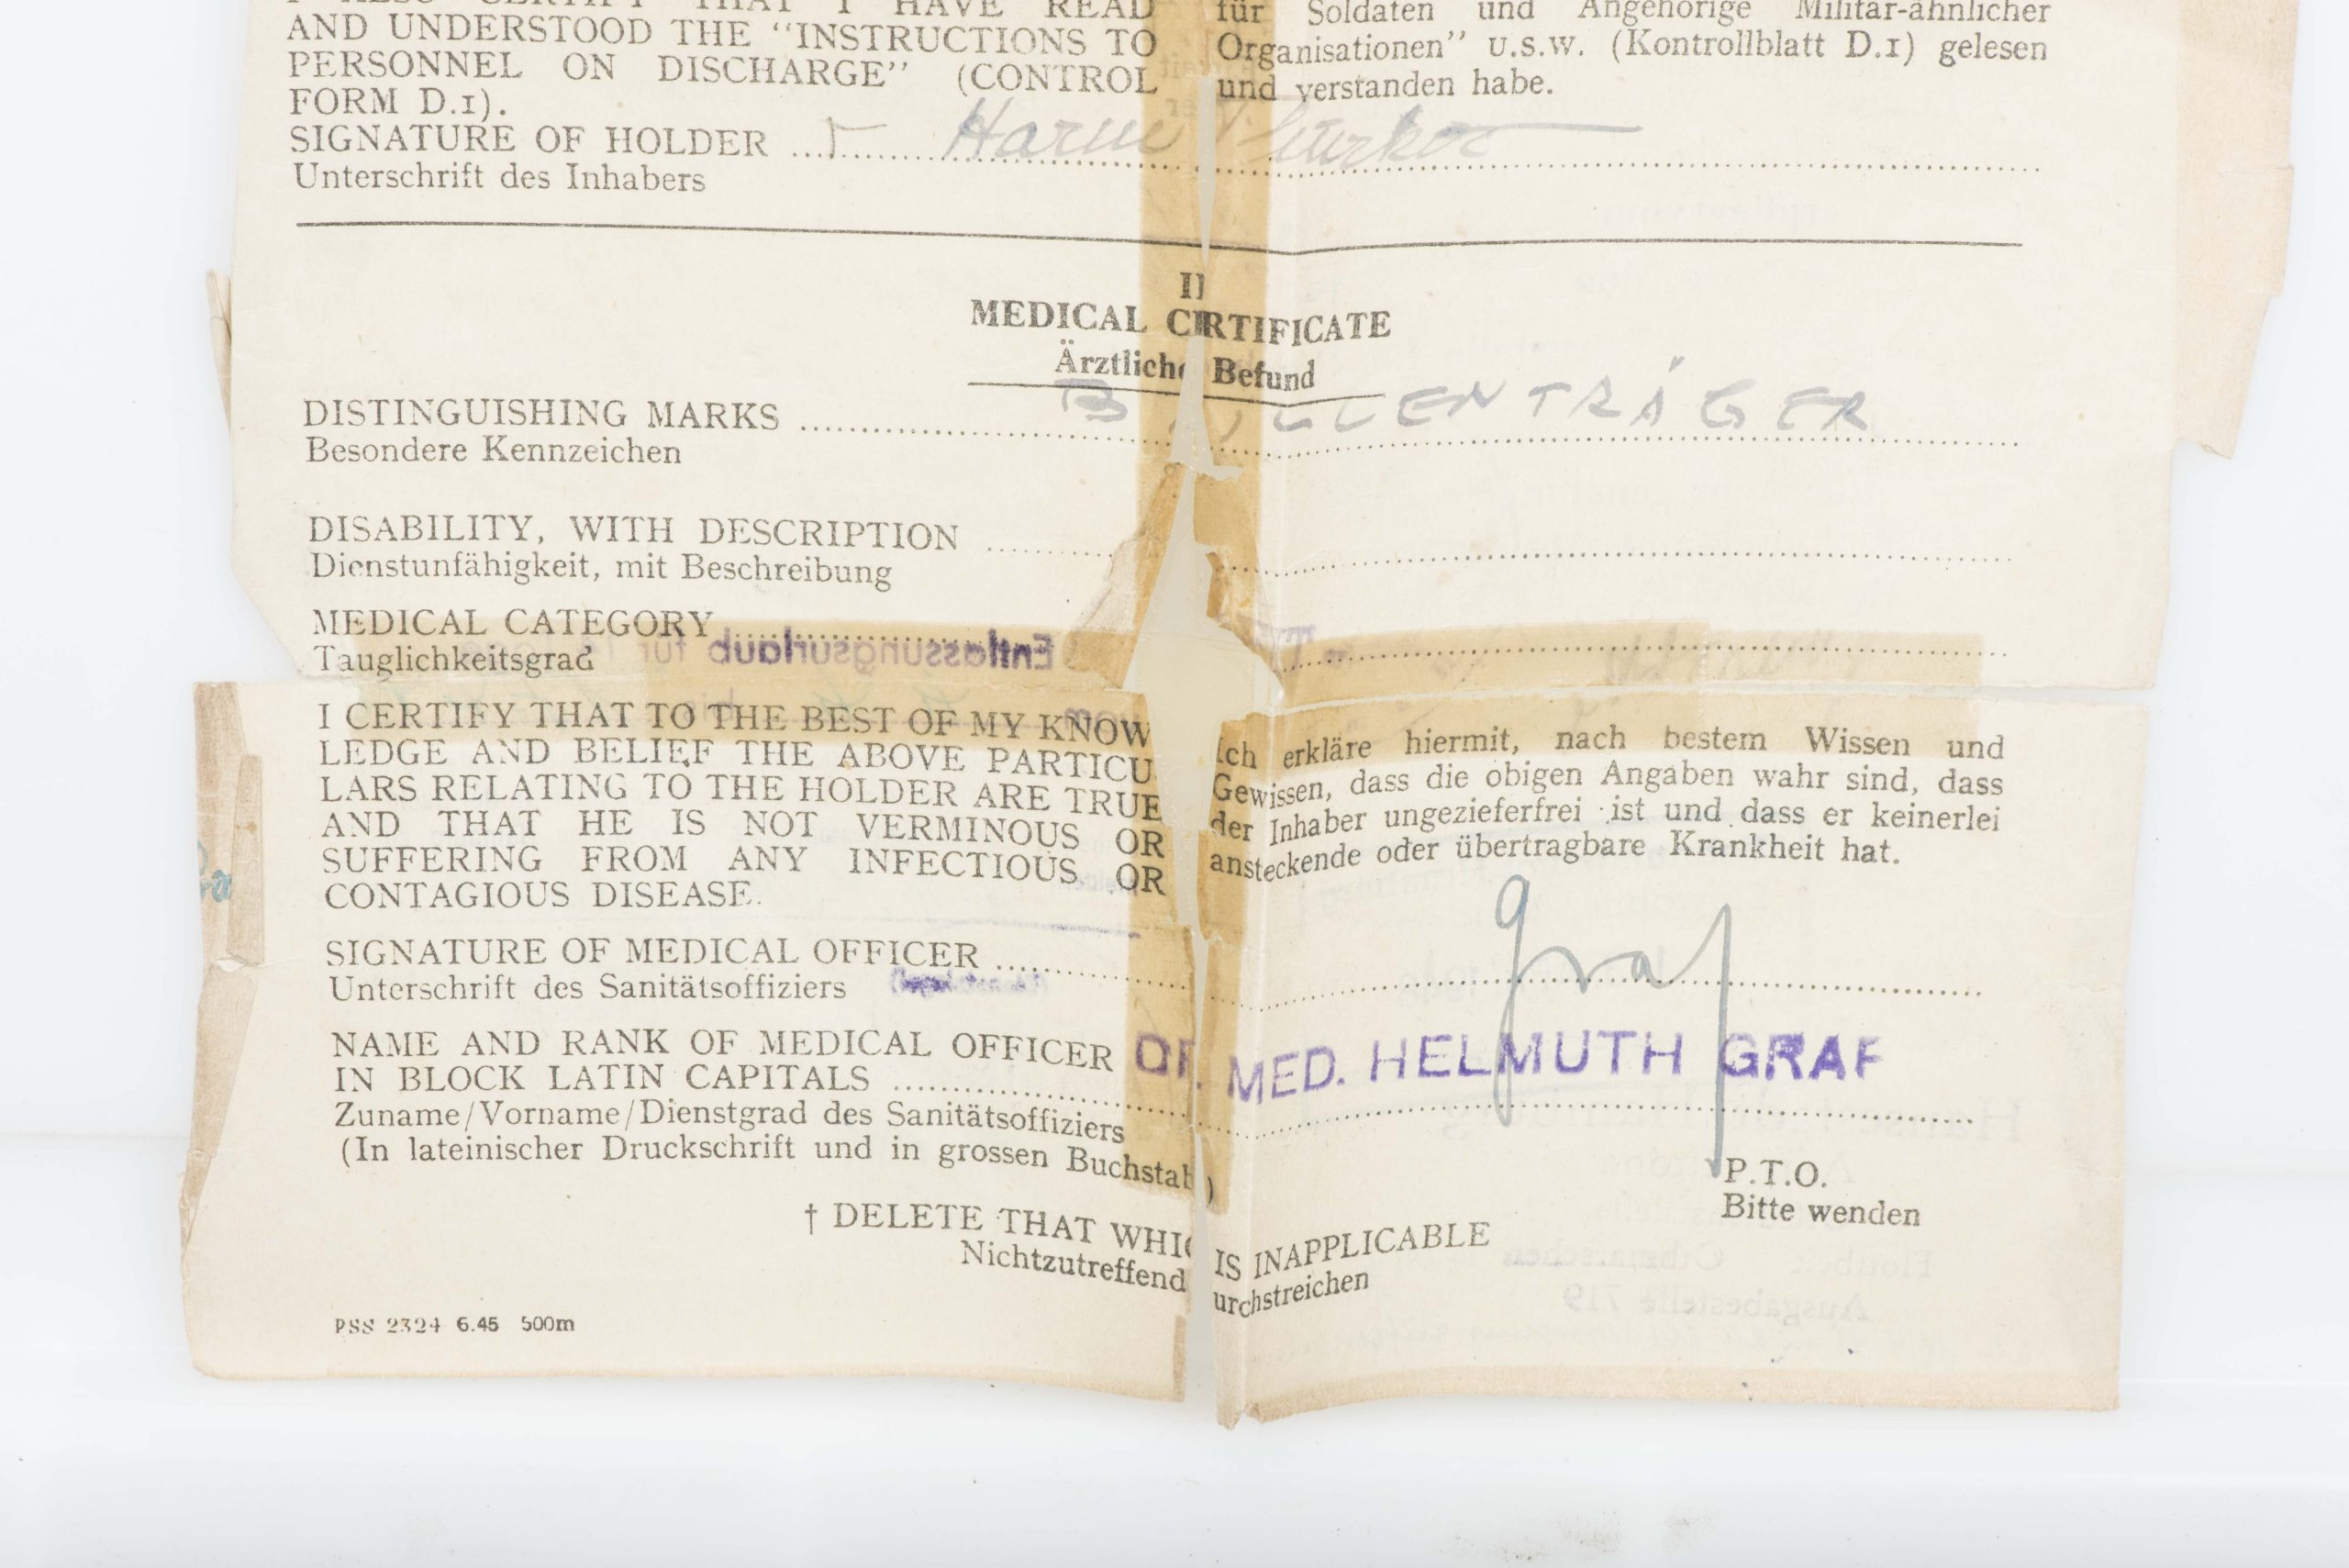 I ALSO CERTIFY THAT I HAVE READ
AND UNDERSTOOD THE “INSTRUCTIONS TO
PERSONNEL ON DISCHARGE” (CONTROL
FORM D.1).
für Soldaten und Angehörige Militär-ähnlicher
Organisationen” U.S.W. (Kontrollblatt D.1) gelesen
und verstanden habe.
SIGNATURE OF HOLDER
Unterschrift des Inhabers
II
MEDICAL CERTIFICATE
Ärztliche Befund
DISTINGUISHING MARKS BRILLENTRÄGER
Besondere Kennzeichen
DISABILITY, WITH DESCRIPTION
Dienstunfähigkeit, mit Beschreibung
MEDICAL CATEGORY
Tauglichkeitsgrad
Entlassungsurlaub für
I CERTIFY THAT TO THE BEST OF MY KNOW
LEDGE AND BELIEF THE ABOVE PARTICU
LARS RELATING TO THE HOLDER ARE TRUE
AND THAT HE IS NOT VERMINOUS OR
SUFFERING FROM ANY INFECTIOUS OR
CONTAGIOUS DISEASE.
Ich erkläre hiermit, nach bestem Wissen und
Gewissen, dass die obigen Angaben wahr sind, dass
der Inhaber ungezieferfrei ist und dass er keinerlei
ansteckende oder übertragbare Krankheit hat.
SIGNATURE OF MEDICAL OFFICER Graf
Unterschrift des Sanitätsoffiziers
NAME AND RANK OF MEDICAL OFFICER DR. MED. HELMUTH GRAF
IN BLOCK LATIN CAPITALS
Zuname/Vorname/Dienstgrad des Sanitätsoffiziers
(In lateinischer Druckschrift und in grossen Buchstab)
P.T.O.
Bitte wenden
† DELETE THAT WHIC IS INAPPLICABLE
Nichtzutreffend urchstreichen
PSS 2324 6.45 500m
Ausgabestelle 719